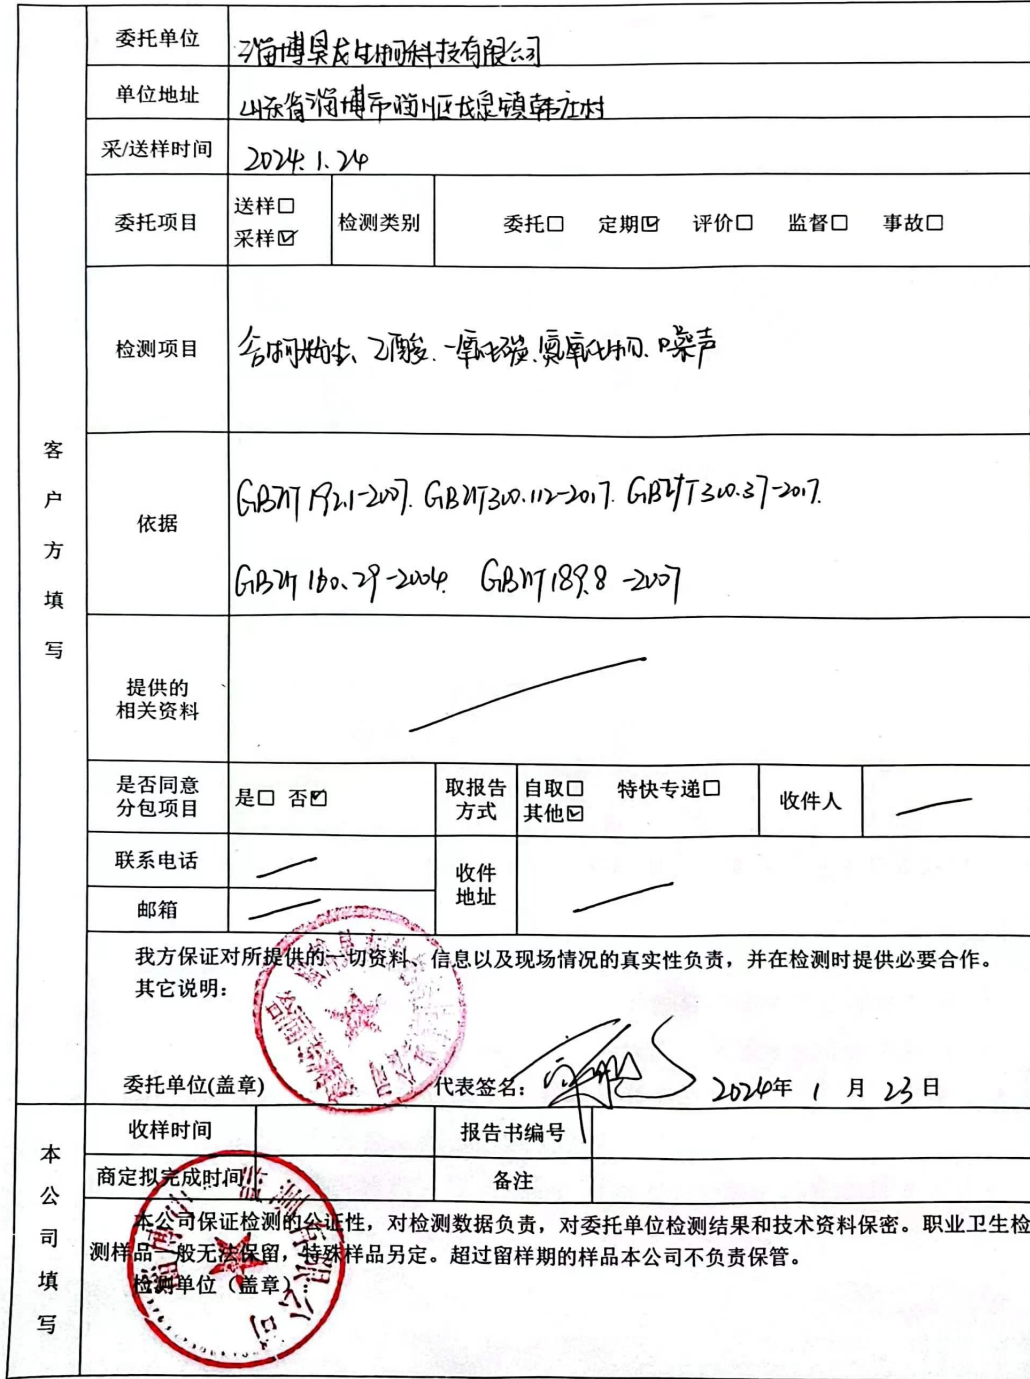 委托单位 淄博昊龙生物科技有限公司
单位地址 山东省淄博市淄川区龙泉镇韩庄村
采/送样时间 2024.1.24
委托项目 送样□ 采样☑ 检测类别 委托□ 定期☑ 评价□ 监督□ 事故□
检测项目 谷物粉尘、乙酸、一氧化碳、氮氧化物、噪声
客户方填写
依据 GBZ/T 192.1-2007. GBZ/T300.112-2017. GBZ/T300.37-2017.
GBZ/T 160.29-2004. GBZ/T189.8-2007
提供的
相关资料
是否同意
分包项目 是□ 否☑ 取报告
方式 自取□ 特快专递□
其他☑ 收件人
联系电话 收件
地址
邮箱
我方保证对所提供的一切资料、信息以及现场情况的真实性负责，并在检测时提供必要合作。
其它说明：
委托单位(盖章) 代表签名： 2024年 1 月 23 日
本公司填写
收样时间 报告书编号
商定拟完成时间 备注
本公司保证检测的公证性，对检测数据负责，对委托单位检测结果和技术资料保密。职业卫生检
测样品一般无法保留，特殊样品另定。超过留样期的样品本公司不负责保管。
检测单位（盖章）